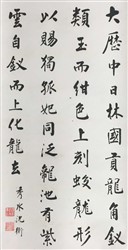 大歷中日林國貢龍角釵
類玉而紺色上刻蛟龍形
以賜獨孤妃同泛龍池有紫
雲自釵而上化龍去
秀水沈衛